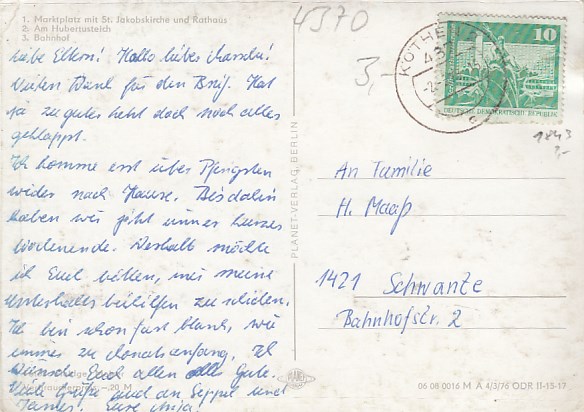 1. Marktplatz mit St. Jakobskirche und Rathaus
2. Am Hubertusteich
3. Bahnhof
4370
3,-
KÖTHEN
10
DEUTSCHE DEMOKRATISCHE REPUBLIK
1843
Liebe Eltern! Hallo liebes
Vielen Dank für den Brief. Hat
ja zu guter Letzt doch noch alles
geklappt.
Ich komme erst über Pfingsten
wieder nach Hause. Bis dahin
haben wir jetzt immer kurzes
Wochenende. Deshalb möchte
ich Euch bitten, mir meine
beihilfen zu schicken.
Ich bin schon fast blank, wie
immer zu Monatsanfang. Ich
wünsche Euch allen alles Gute.
Viele Grüße auch an Seppel und
Eure
20 M
PLANET-VERLAG, BERLIN
An Familie
H. Maaß
1421 Schwante
Bahnhofstr. 2
PLANET
06 08 0016 M A 4/3/76 DDR 11-15-17